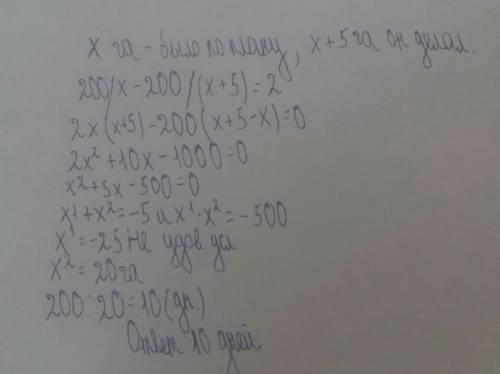 x га - было по плану, x+5 га он делал.
200/x - 200/(x+5) = 2
2x(x+5) - 200(x+5-x)=0
2x²+10x - 1000=0
x²+5x - 500=0
x¹+x²=-5 и x¹·x²=-500
x¹=-25 Не удов. усл.
x²= 20га
200:20=10(дн.)
Ответ: 10 дней